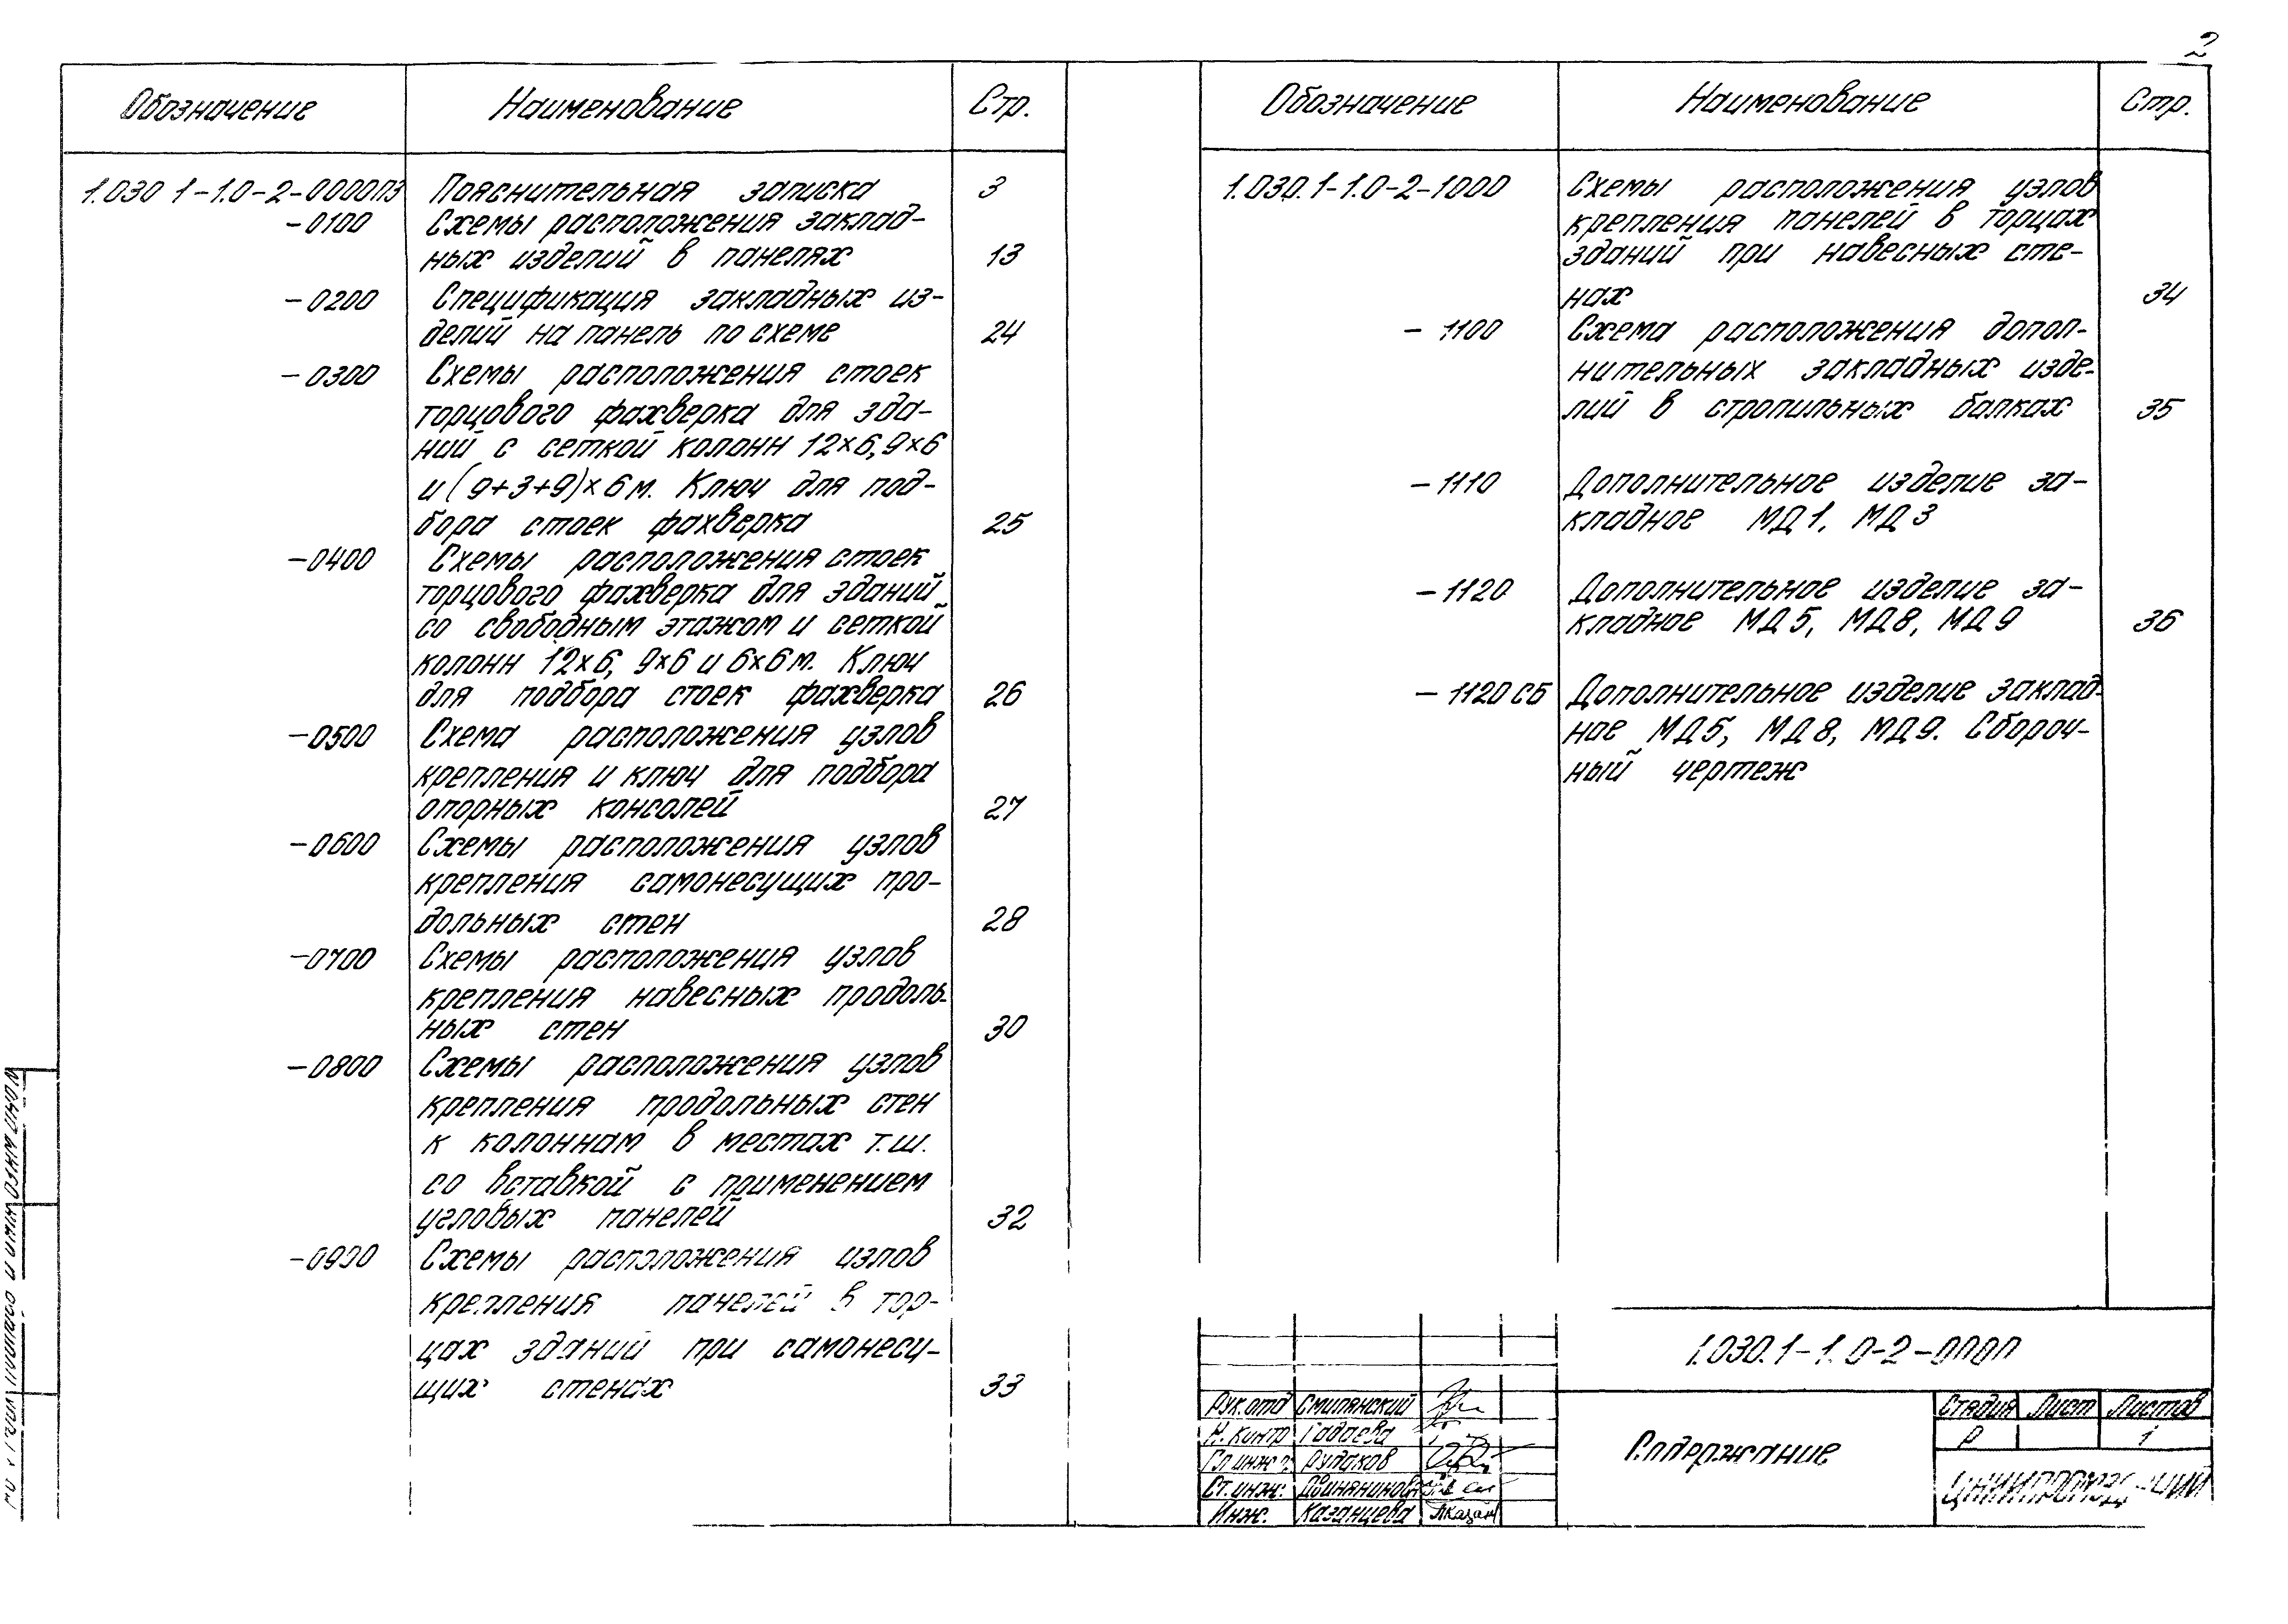 2
Обозначение Наименование Стр.
1.030 1-1.0-2-0000ПЗ Пояснительная записка 3
-0100 Схемы расположения заклад-
ных изделий в панелях 13
-0200 Спецификация закладных из-
делий на панель по схеме 24
-0300 Схемы расположения стоек
торцового фахверка для зда-
ний с сеткой колонн 12×6, 9×6
и (9+3+9)×6 м. Ключ для под-
бора стоек фахверка 25
-0400 Схемы расположения стоек
торцового фахверка для зданий
со свободным этажом и сеткой
колонн 12×6, 9×6 и 6×6 м. Ключ
для подбора стоек фахверка 26
-0500 Схема расположения узлов
крепления и ключ для подбора
опорных консолей 27
-0600 Схемы расположения узлов
крепления самонесущих про-
дольных стен 28
-0700 Схемы расположения узлов
крепления навесных продоль-
ных стен 30
-0800 Схемы расположения узлов
крепления продольных стен
к колоннам в местах т.ш.
со вставкой с применением
угловых панелей 32
-0900 Схемы расположения узлов
крепления панелей в тор-
цах зданий при самонесу-
щих стенах 33
Обозначение Наименование Стр.
1.030.1-1.0-2-1000 Схемы расположения узлов
крепления панелей в торцах
зданий при навесных сте-
нах 34
- 1100 Схема расположения допол-
нительных закладных изде-
лий в стропильных балках 35
-1110 Дополнительное изделие за-
кладное МД1, МД3
-1120 Дополнительное изделие за-
кладное МД5, МД8, МД9 36
- 1120 СБ Дополнительное изделие заклад-
ное МД5, МД8, МД9. Сбороч-
ный чертеж
1.030.1-1.0-2-0000
Рук.отд Смилянский
Н. Контр Гадаева
Гл инж п. Рудаков
Ст. инж.
Инж. Казанцева
Содержание
Стадия Лист Листов
Р 1